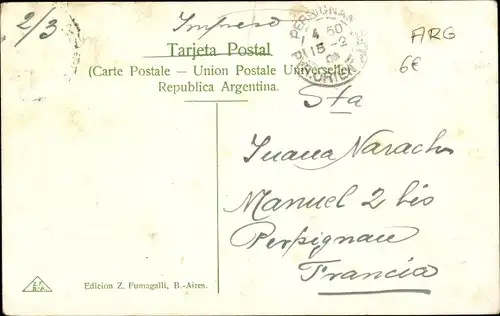 2/3
Impreso
PERPIGNAN
4 50
15-2
PYR. ORIENT.
ARG
6€
Tarjeta Postal
(Carte Postale – Union Postale Universelle)
Republica Argentina.
Sta
Juana Narach
Manuel 2 bis
Perpignan
Francia
Edicion Z. Fumagalli, B.-Aires.